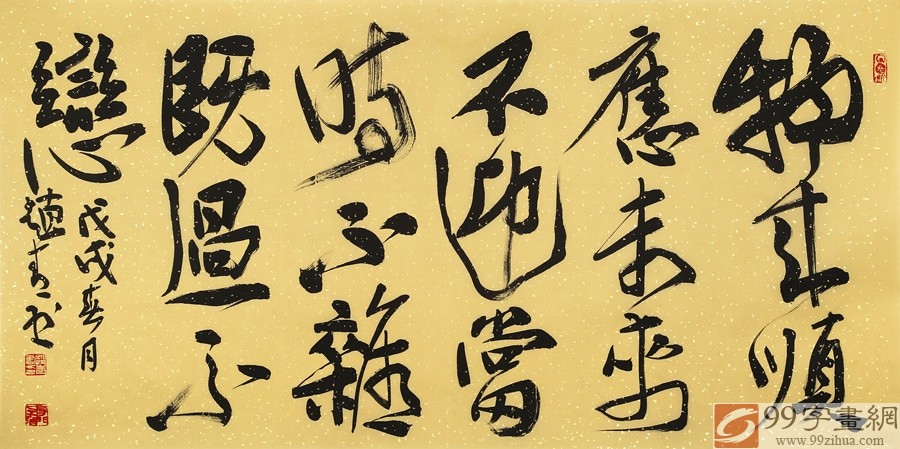 物来順
應未來
不迎當
時不雜
既過不
戀
戊戌春月
趙青书
99字畫網
www.99zihua.com